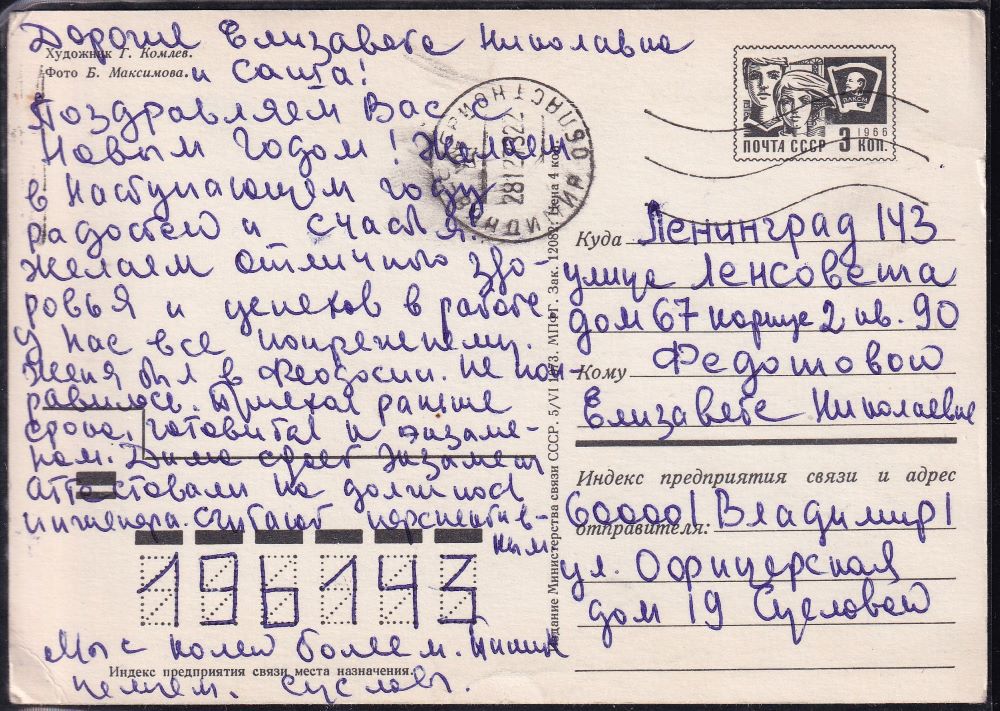 Дорогие Елизавета Николавна
Художник Г. Комлев.
Фото Б. Максимова.
и Саша!
Поздравляем Вас с
Новым годом! Желаем
в наступающем году
радостей и счастья.
Желаем отличного здо-
ровья и успехов в работе
У нас все попрежнему.
Женя был в Феодосии. Не пон-
равилось. Приехал раньше
срока, готовится к экзаме-
нам. Дима сдает экзамены
Аттестовали на должность
инженера. Считают перспектив-
ным
196143
Мы с Колей болеем.
Индекс предприятия связи места назначения.
Сусловы.
Издание Министерства связи СССР. 5/VI 1973. МПФГ. Зак. 12082. Цена 4 коп.
ВЛАДИМИР ОБЛАСТНОЙ
2812
ВЛКСМ
1966
ПОЧТА СССР 3 КОП.
Куда Ленинград 143
улица Ленсовета
дом 67 корпус 2 кв. 90
Кому Федотовой
Елизавете Николаевне
Индекс предприятия связи и адрес
отправителя: 600001 Владимир 1
ул. Офицерская
дом 19 Сусловой